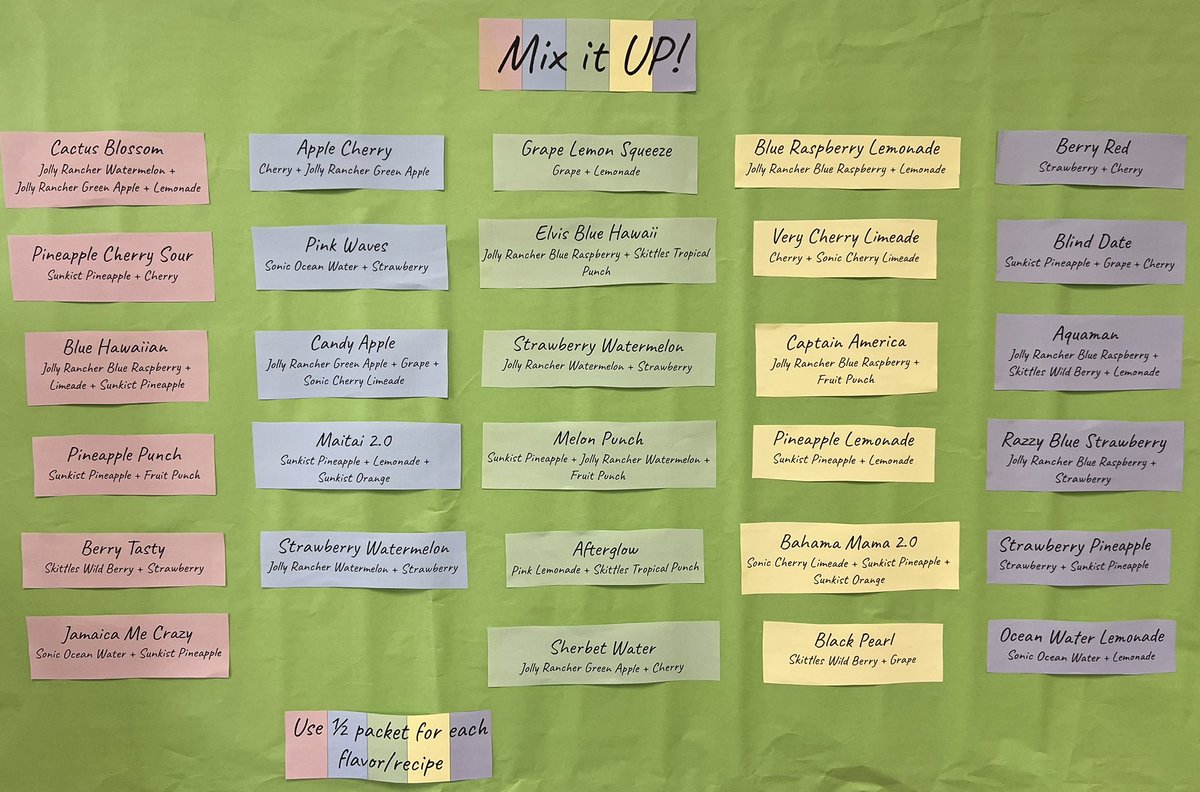 Mix it UP!
Cactus Blossom
Jolly Rancher Watermelon +
Jolly Rancher Green Apple + Lemonade
Pineapple Cherry Sour
Sunkist Pineapple + Cherry
Blue Hawaiian
Jolly Rancher Blue Raspberry +
Limeade + Sunkist Pineapple
Pineapple Punch
Sunkist Pineapple + Fruit Punch
Berry Tasty
Skittles Wild Berry + Strawberry
Jamaica Me Crazy
Sonic Ocean Water + Sunkist Pineapple
Apple Cherry
Cherry + Jolly Rancher Green Apple
Pink Waves
Sonic Ocean Water + Strawberry
Candy Apple
Jolly Rancher Green Apple + Grape +
Sonic Cherry Limeade
Maitai 2.0
Sunkist Pineapple + Lemonade +
Sunkist Orange
Strawberry Watermelon
Jolly Rancher Watermelon + Strawberry
Grape Lemon Squeeze
Grape + Lemonade
Elvis Blue Hawaii
Jolly Rancher Blue Raspberry + Skittles Tropical
Punch
Strawberry Watermelon
Jolly Rancher Watermelon + Strawberry
Melon Punch
Sunkist Pineapple + Jolly Rancher Watermelon +
Fruit Punch
Afterglow
Pink Lemonade + Skittles Tropical Punch
Sherbet Water
Jolly Rancher Green Apple + Cherry
Blue Raspberry Lemonade
Jolly Rancher Blue Raspberry + Lemonade
Very Cherry Limeade
Cherry + Sonic Cherry Limeade
Captain America
Jolly Rancher Blue Raspberry +
Fruit Punch
Pineapple Lemonade
Sunkist Pineapple + Lemonade
Bahama Mama 2.0
Sonic Cherry Limeade + Sunkist Pineapple +
Sunkist Orange
Black Pearl
Skittles Wild Berry + Grape
Berry Red
Strawberry + Cherry
Blind Date
Sunkist Pineapple + Grape + Cherry
Aquaman
Jolly Rancher Blue Raspberry +
Skittles Wild Berry + Lemonade
Razzy Blue Strawberry
Jolly Rancher Blue Raspberry +
Strawberry
Strawberry Pineapple
Strawberry + Sunkist Pineapple
Ocean Water Lemonade
Sonic Ocean Water + Lemonade
Use ½ packet for each
flavor/recipe